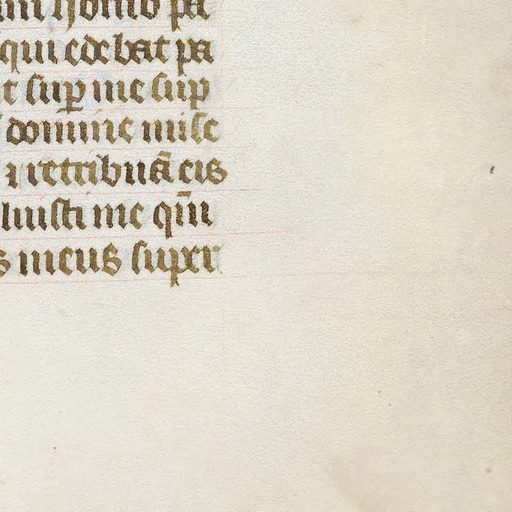 homo pa
qui edebat pa
t sup me sup
domine mise
⁊ retribuā eis
luisti me qm̄
s meus super